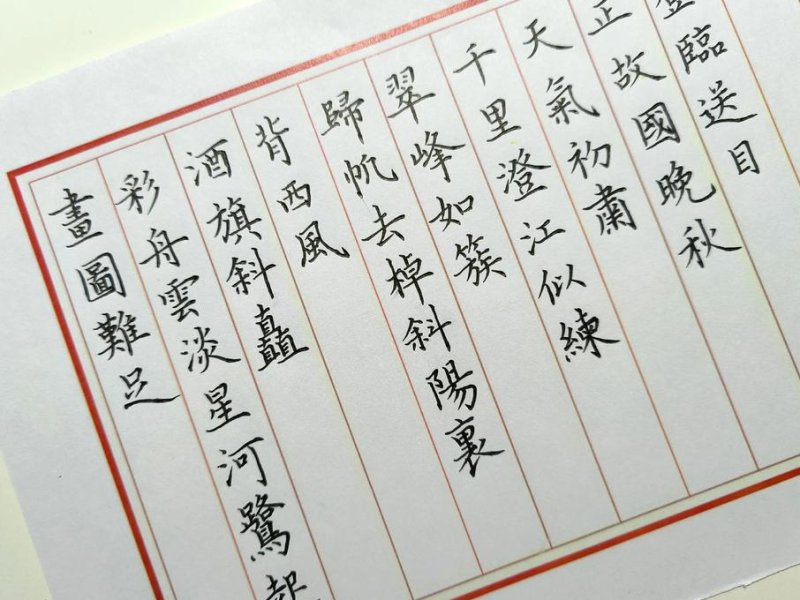 登臨送目
正故國晚秋
天氣初肅
千里澄江似練
翠峰如簇
歸帆去棹斜陽裏
背西風
酒旗斜矗
彩舟雲淡星河鷺起
畫圖難足